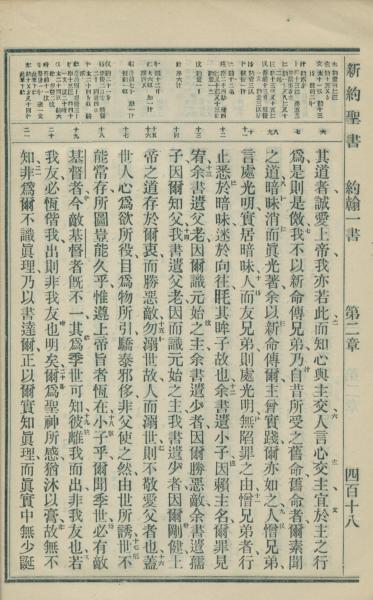 新約聖書 約翰一書 第二章 四百十八
其道者誠愛上帝我亦若此而知心與主交人言心交主宜於主之行
爲是則是傚我不以新命傳兄弟乃自昔所受之舊命舊命者爾素聞
之道暗昧消而眞光著余以新命傳爾主曾實踐爾亦如之人憎兄弟
言處光明實居暗昧人而友兄弟則處光明無陷罪之由憎兄弟者行
止悉於暗昧迷於向往眊其眸子故也余書遺小子因賴主名爾罪見
宥余書遺父老因爾識元始之主余書遺少者因爾勝惡敵余書遺孺
子因爾知父我書遺父老因爾識元始之主我書遺少者因爾剛健上
帝之道存於爾衷而勝惡敵勿溺世故人而溺世則不敬愛父者也蓋
世人心爲欲所役目爲物所引驕泰邪侈非父使之然由世所誘世不
能常存所圖豈能久乎惟遵上帝旨者恆在小子乎爾聞季世必有敵
基督者今敵基督者旣不一其爲季世可知彼離我而出非我友也若
我友必恆偕我出則非我友也明矣爾爲聖神所感猶沐以膏故無不
知非爲爾不識眞理乃以書達爾正以爾實知眞理而眞實中無少誕